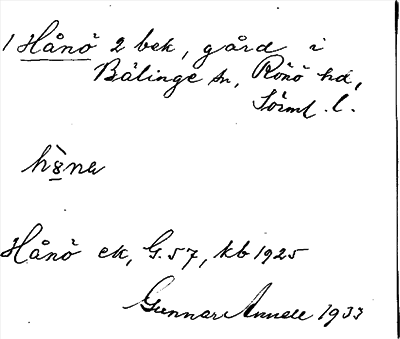 1 Hånö 2 bek, gård i
Bälinge sn, Rönö hd,
Sörml. l.
Hånö ek, G. 57, kb 1925
Gunnar Annell 1933